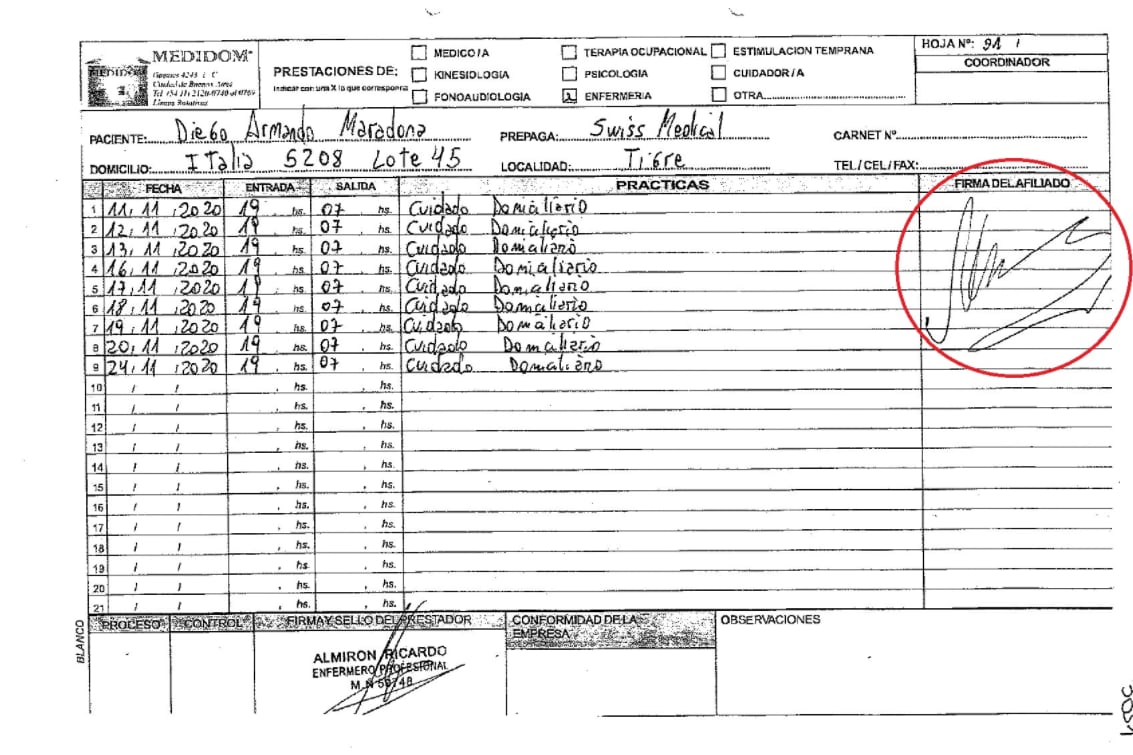 MEDIDOM
PRESTACIONES DE:
Indicar con una X lo que corresponda
MEDICO/A
KINESIOLOGIA
FONOAUDIOLOGIA
TERAPIA OCUPACIONAL
PSICOLOGIA
X ENFERMERIA
ESTIMULACION TEMPRANA
CUIDADOR/A
OTRA
HOJA Nº: 91 /
COORDINADOR
PACIENTE: Diego Armando Maradona PREPAGA: Swiss Medical CARNET Nº
DOMICILIO: Italia 5208 Lote 45 LOCALIDAD: Tigre TEL/CEL/FAX:
FECHA ENTRADA SALIDA PRACTICAS FIRMA DEL AFILIADO
1 11/11/2020 19 hs. 07 hs. Cuidado Domiciliario
2 12/11/2020 19 hs. 07 hs. Cuidado Domiciliario
3 13/11/2020 19 hs. 07 hs. Cuidado Domiciliario
4 16/11/2020 19 hs. 07 hs. Cuidado Domiciliario
5 17/11/2020 19 hs. 07 hs. Cuidado Domiciliario
6 18/11/2020 19 hs. 07 hs. Cuidado Domiciliario
7 19/11/2020 19 hs. 07 hs. Cuidado Domiciliario
8 20/11/2020 19 hs. 07 hs. Cuidado Domiciliario
9 24/11/2020 19 hs. 07 hs. Cuidado Domiciliario
10 / / hs. hs.
11 / / hs. hs.
12 / / hs. hs.
13 / / hs. hs.
14 / / hs. hs.
15 / / hs. hs.
16 / / hs. hs.
17 / / hs. hs.
18 / / hs. hs.
19 / / hs. hs.
20 / / hs. hs.
21 / / hs. hs.
BLANCO
PROCESO CONTROL FIRMA Y SELLO DEL PRESTADOR CONFORMIDAD DE LA EMPRESA OBSERVACIONES
ALMIRON RICARDO
ENFERMERO PROFESIONAL